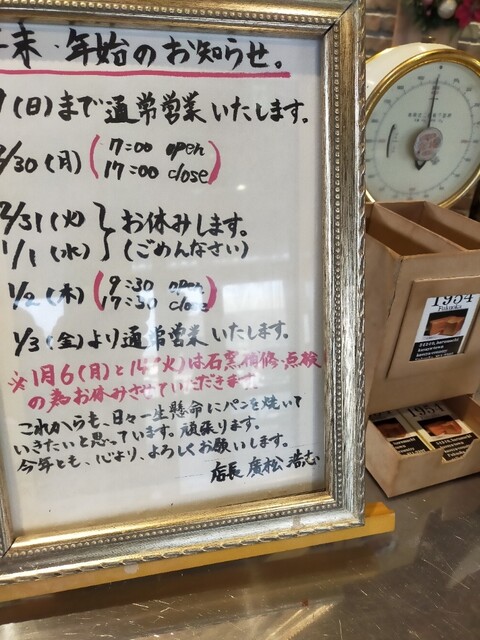 末・年始のお知らせ。
(日)まで通常営業いたします。
/30(月)(17:00 close)
7:00 open
/31(火)
1/1(水)
お休みします。
(ごめんなさい)
1/2(木)
9:30 open
17:30 close
1/3(金)より通常営業いたします。
※1月6(月)と14(火)は石窯補修・点検
の為お休みさせていただきます。
これからも、日々一生懸命にパンを焼いて
いきたいと思っています。頑張ります。
今年とも、心より、よろしくお願いします。
店長 廣松 浩志
1954
Fukuoka
1954